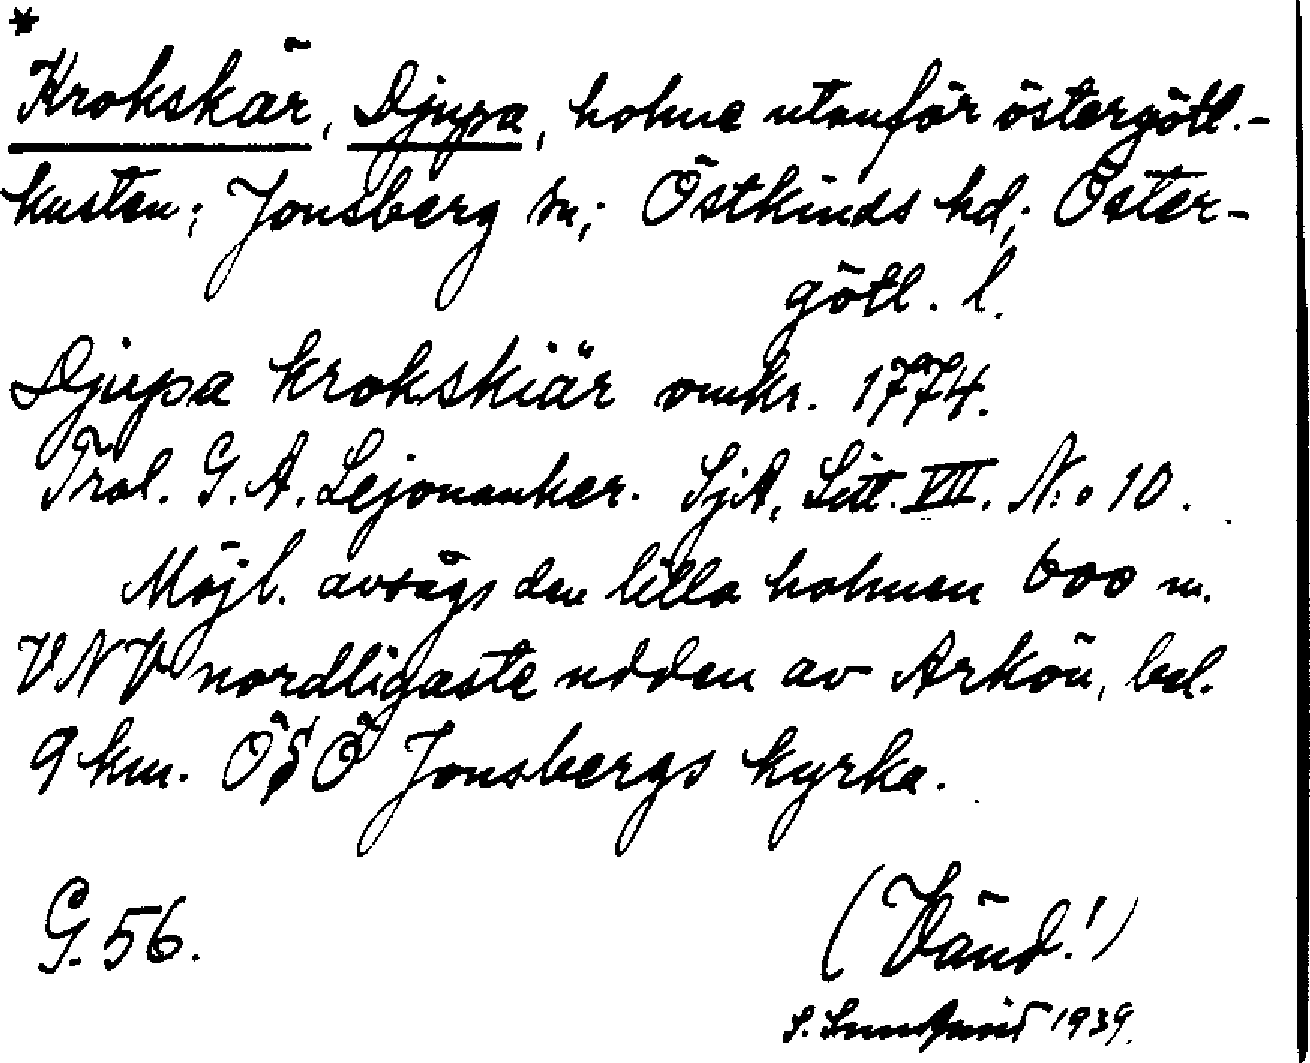 *
Krokskär, Djupa, holme utanför östergötl.-
kusten; Jonsberg sn; Östkinds hd; Öster-
götl. l.
Djupa krokskiär omkr. 1774.
Trol. G. A. Lejonanker. SjA, Litt. VII. N:o 10.
Möjl. avsågs den lilla holmen 600 m.
VNV nordligaste udden av Arkön, bel.
9 km. ÖSÖ Jonsbergs kyrka.
G. 56.
(Vänd!)
S. Sundqvist 1939.